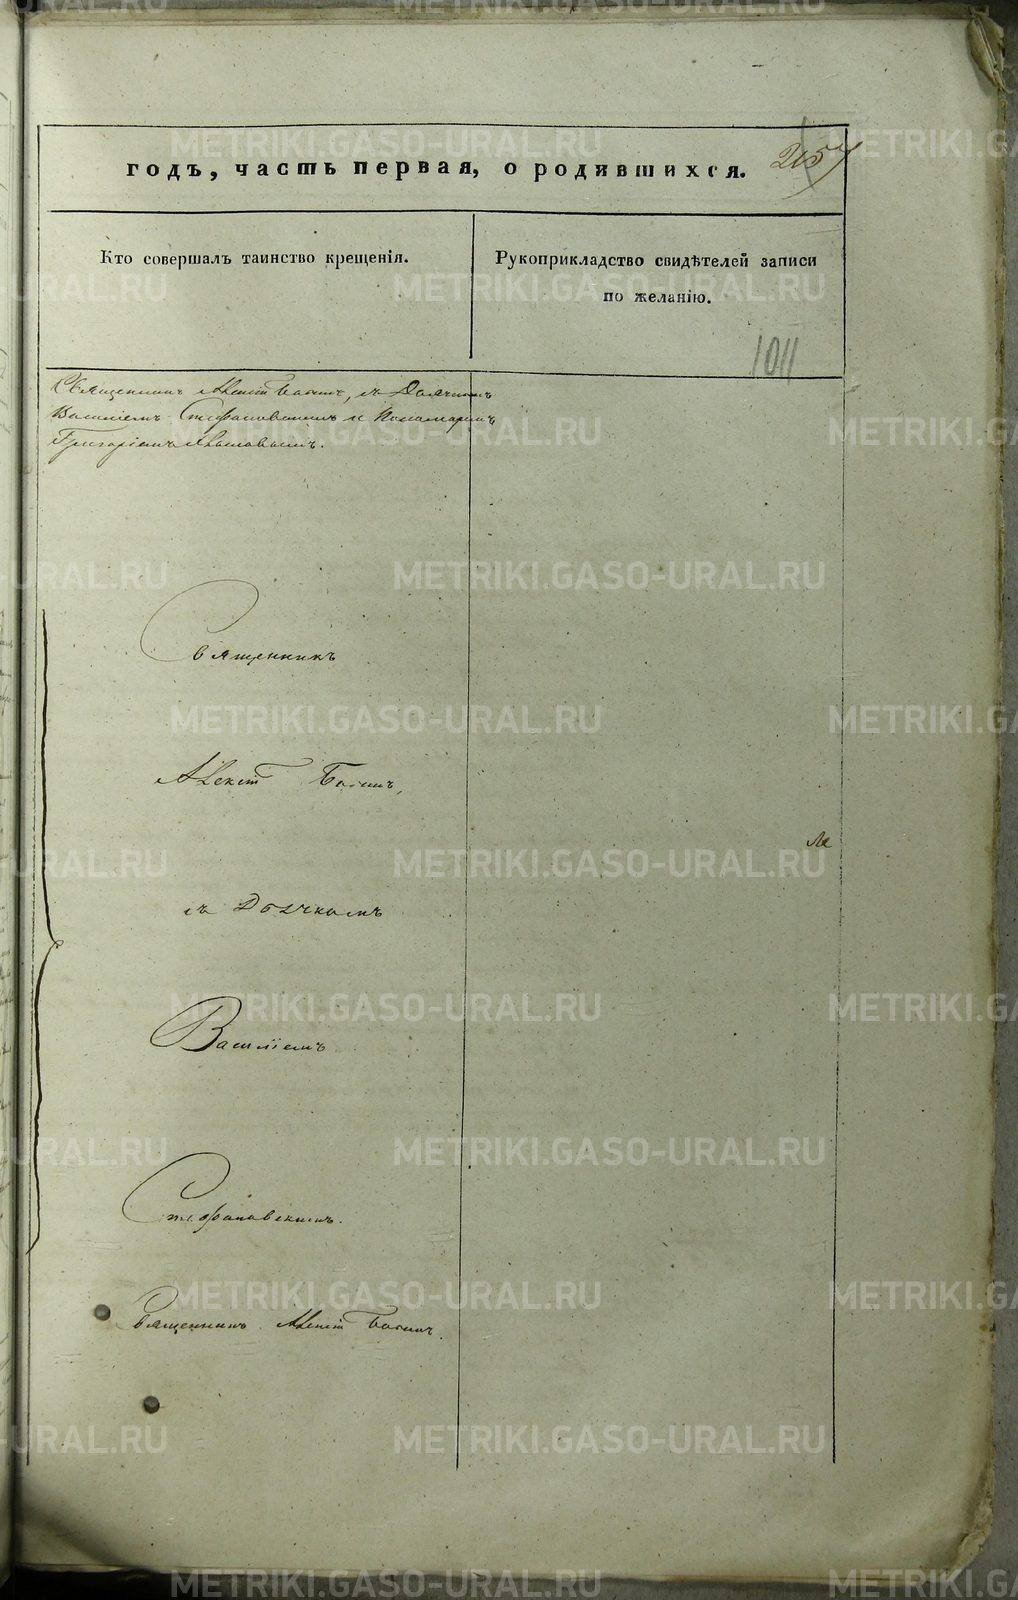 годъ, часть первая, о родившихся.
Кто совершалъ таинство крещенія.
Рукоприкладство свидѣтелей записи
по желанію.
1011
Священникъ Алексій, съ Дьячкомъ
Василіемъ Стефановскимъ и Пономаремъ
Григоріемъ
Священникъ
Алексій
съ Дьячкомъ
Василіемъ
Стефановскимъ.
Священникъ Алексій
METRIKI.GASO-URAL.RU